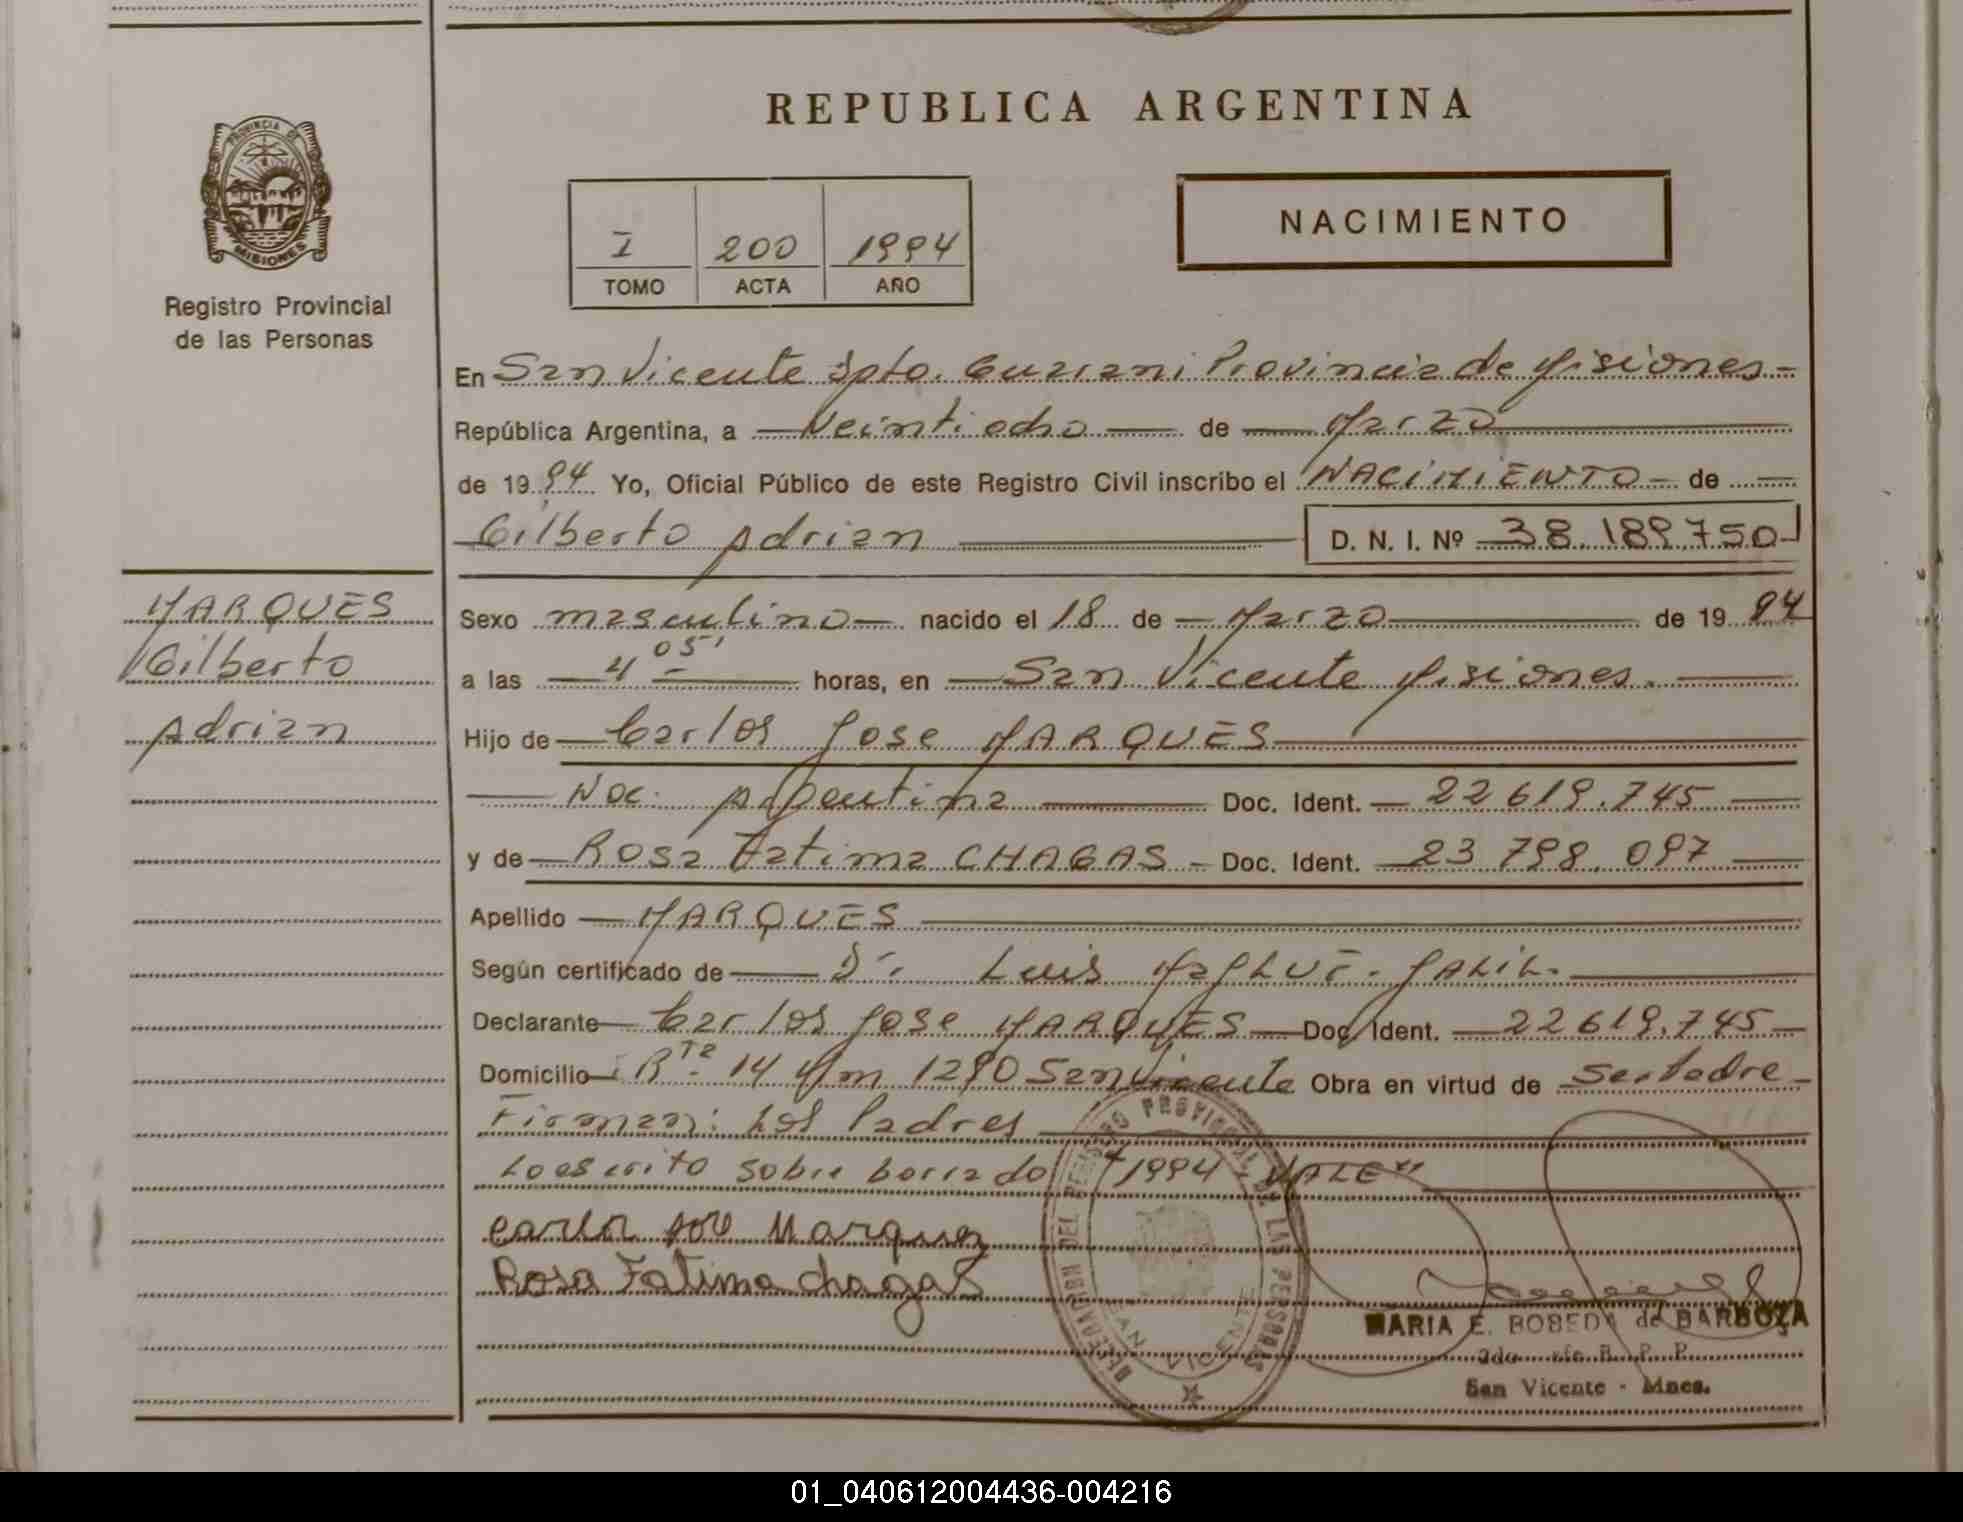 REPUBLICA ARGENTINA
PROVINCIA DE
MISIONES
Registro Provincial
de las Personas
NACIMIENTO
I 200 1994
TOMO ACTA AÑO
En San Vicente Dpto. Guarani Provincia de Misiones-
República Argentina, a Veintiocho de Marzo
de 1994 Yo, Oficial Público de este Registro Civil inscribo el NACIMIENTO- de
Gilberto Adrian D. N. I. Nº 38.189.750
MARQUES
Gilberto
Adrian
Sexo masculino nacido el 18 de Marzo de 1994
a las 4 05' horas, en San Vicente Misiones.
Hijo de Carlos Jose MARQUES
Nac. Argentina Doc. Ident. 22619.745
y de Rosa Fatima CHAGAS - Doc. Ident. 23 798.097
Apellido MARQUES
Según certificado de Dr. Luis
Declarante Carlos Jose MARQUES Doc. Ident. 22619.745
Domicilio Rta. 14 Km 1290 San Vicente Obra en virtud de ser padre-
Firman: Los Padres
Lo escrito sobre borrado "1994 VALE"
Carlos José Marquez
Rosa Fatima chagas
DELEGACION DEL REGISTRO PROVINCIAL DE LAS PERSONAS
SAN VICENTE
MARIA E. BOBEDA de BARBOZA
R. P. P.
San Vicente - Mnes.
01_040612004436-004216